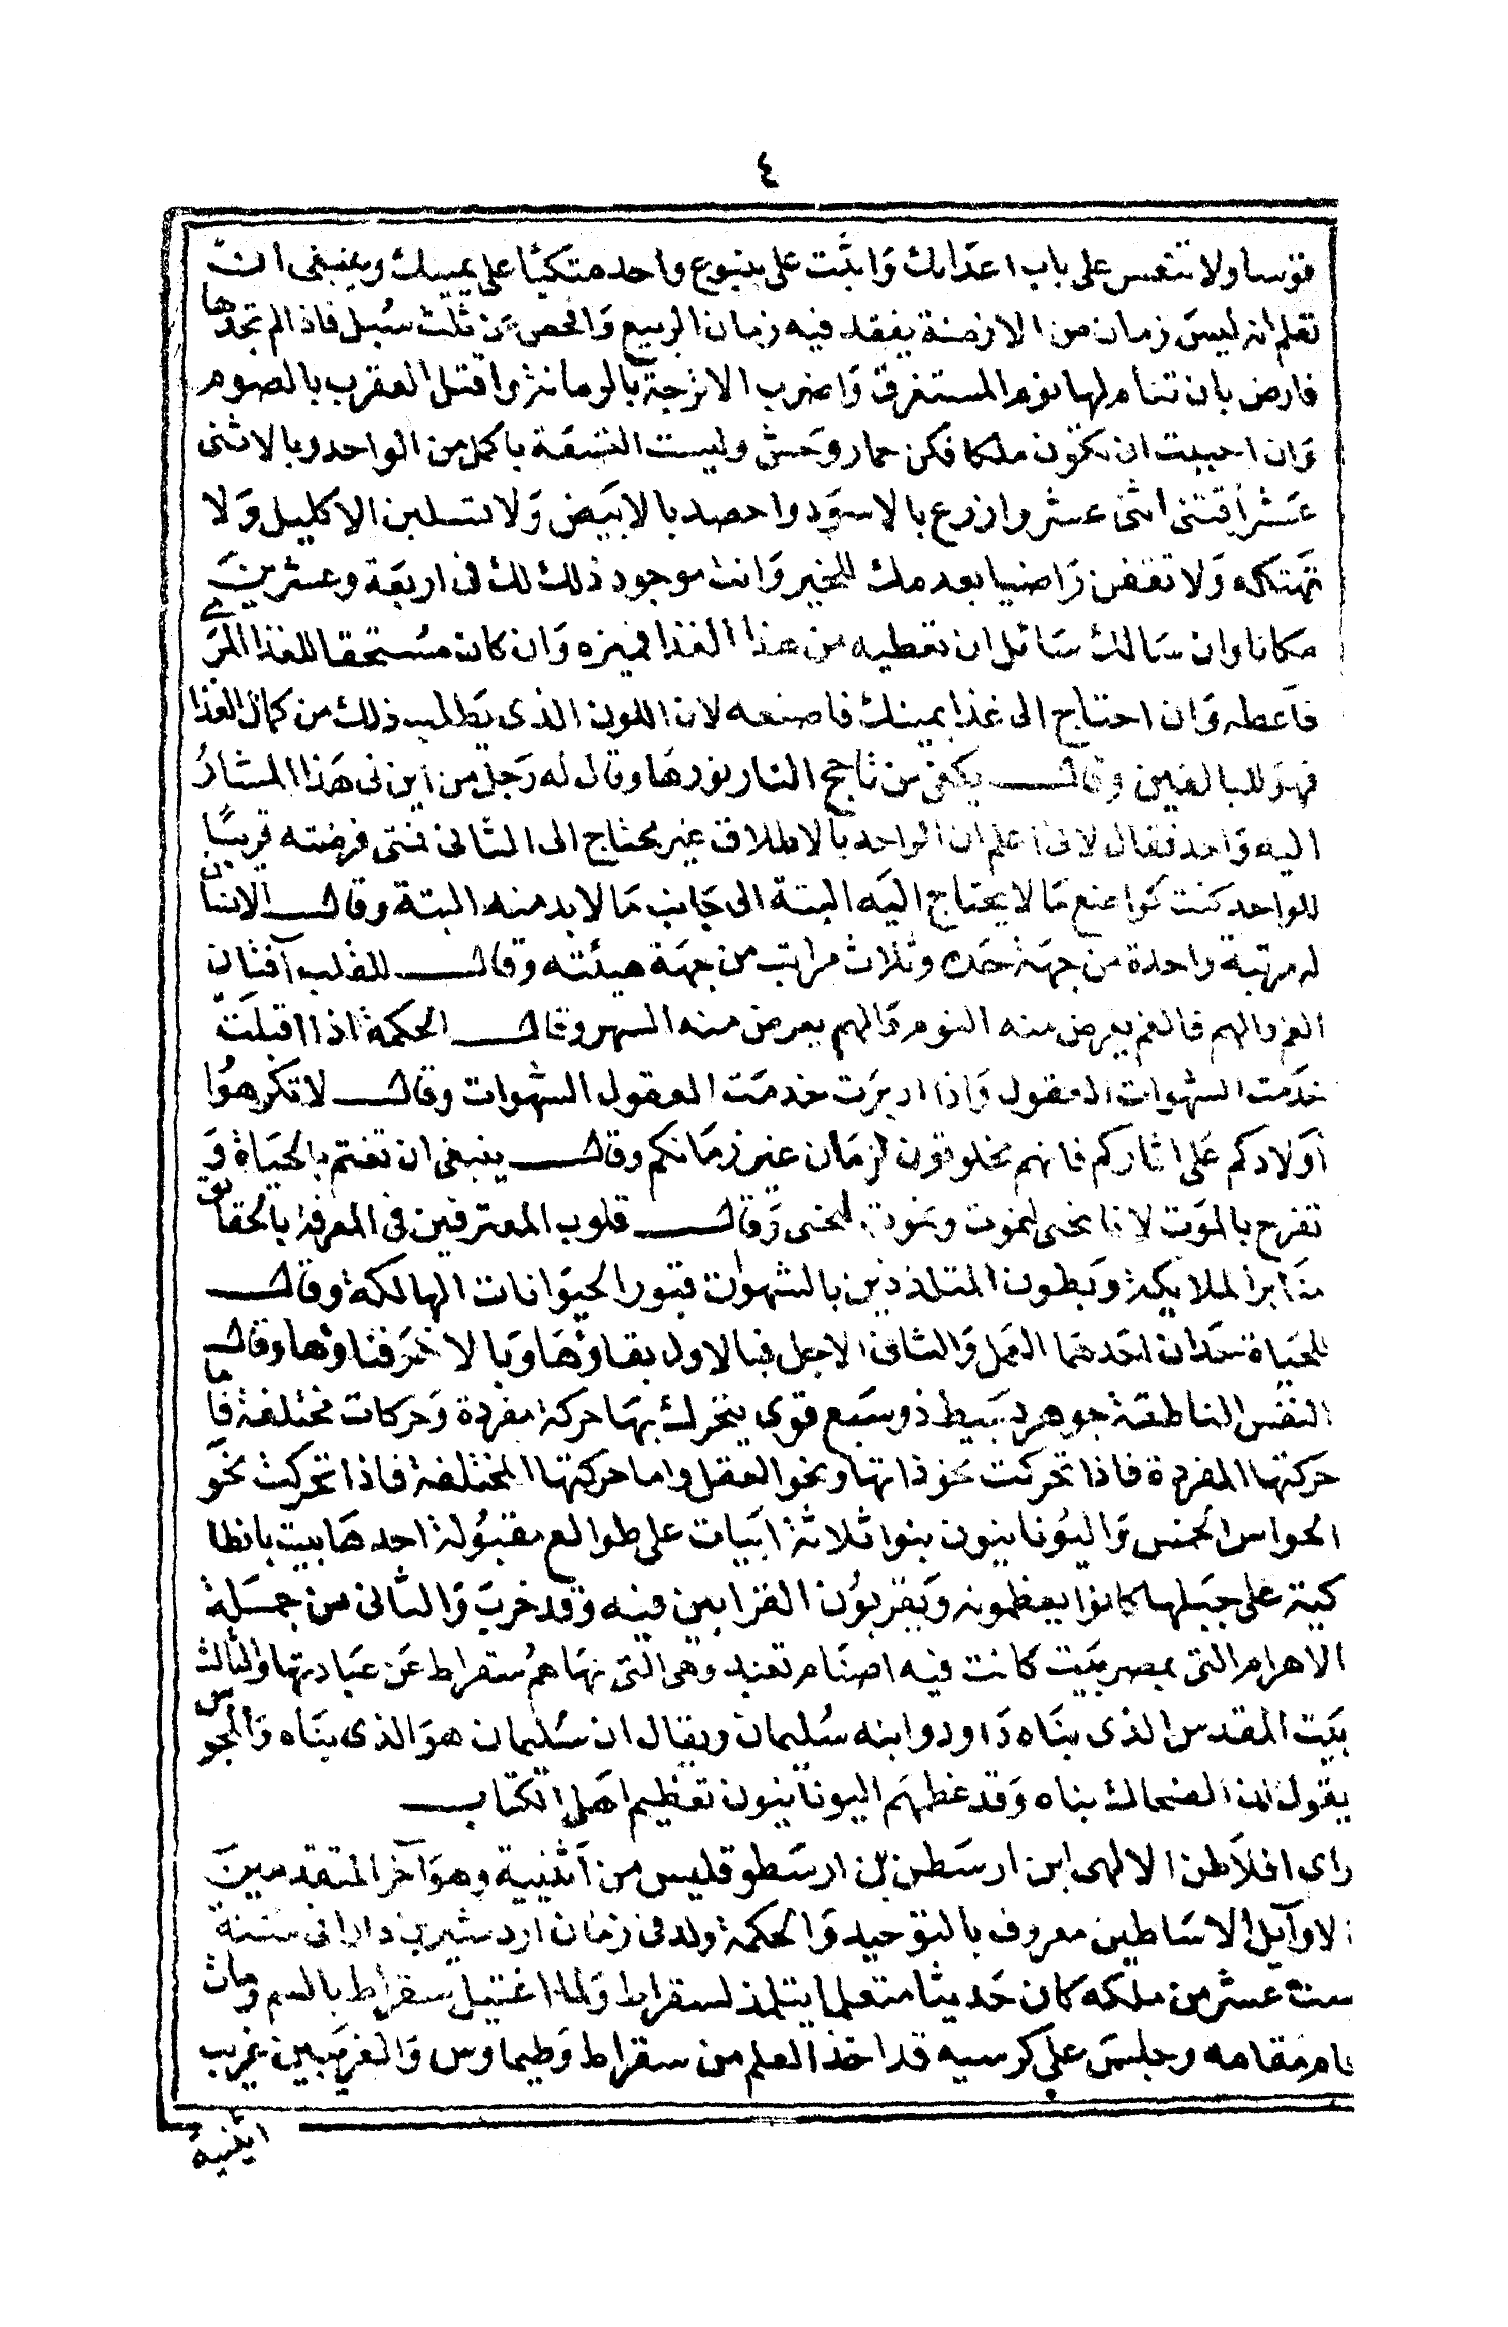 ٤
قوسا ولا تنعس على باب اعدائك وَاثبت على ينبوع واحد متكئا على يمينك وينبغى ان
تعلم انه ليسَ زمان من الازمنة يفقد فيه زمان الربيع وَالحص عَن ثلث سُبل فاذا لم تجدها
فارض بان تنام لها نوم المستغرق وَاضرب الاترجة بالرمانة واقتل العقرب بالصوم
وَان احببت ان تكون ملكا فكن حمار وَحش وليست التسعَة باكمل من الواحد وبالاثنى
عَشر اقتنى اثنى عشر وازرع بالاسوَد واحصد بالابيَض وَلا تسلبن الاكليل وَلا
تهتكه وَلا تقفن رَاضيا بعدمك للخير وَانت موجود ذلك لك فى اربعَة وعشرين
مكانا وان سَالك سَائل ان تعطيه من هذا الغذا فميزه وَان كان مُستحقا للغذا المرَبى
فاَعطه وَان احتاج الى غذا يمينك فاصنعه لان اللون الذى يَطلب ذلك من كمال الغذا
فهوَ للبالغين وقال يكفى من تاجج النار نورهَا وقال له رَجل من اين لى هَذا المشارُ
اليه وَاحد فقال لانى اعلم ان الواحد بالاطلاق غير محتاج الى الثانى فمتى فرضته قريبًا
للواحد كنت كوَاضع مَا لا يحتاج اليَه البتة الى جَانب مَا لا بد منه البتة وقال الانسان
له مرتبة واحدة من جهَة حَده وثلاث مراتب من جهَة هيئته وقال للقلب آفتان
الغم والهم فالغم يعرض منه النوم وَالهم يعرض منه السهر وقال الحكمة اذا اقبلَت
خدَمت الشهوات العقول وَاذا ادبرَت خدمَت العقول الشهوات وقال لا تكرهوُا
أوَلادكم عَلى اثاركم فانهم مخلوقون لزمَان غير زمَانكم وقال ينبغى ان تغتم بالحيَاة وَ
تفرح بالموَت لانا نحيى لنموت ونموت لنحيى وَقال قلوب المعترفين فى المعرفة بالحقائق
منَابر الملايكة وبَطون المتلذذين بالشهوات قبور الحيوَانات الهالكة وقال
للحيَاة حَدان احَدهمَا العمل وَالثانى الاجل فبالاول بقاؤهَا وَبالاخرَ فناؤها وقال
النفس الناطقة جوهر بسَيط ذو سبَع قوى يتحرك بهَا حركة مفردة وَحركات مختلفة فاما
حركتها المفردة فاذا تحركت نحوَ ذاتها ونحو العقل واما حركتها المختلفة فاذا تحركت نحوَ
الحواس الخمس وَاليوُنانيون بنوا ثلاثة ابيَات على طوالع مقبُولة احدهَا بيت بانطا
كية على جبَلها كانوا يعظمونه ويَقربُون القرابين فيه وَقد خربَ وَالثانى من جملَة
الاهرام التى بمصر بيَت كانت فيه اصنَام تعبد وهى التى نهَاهمُ سقراط عَن عبَادتها وَالثالث
بيَت المقدس الذى بنَاه دَاود وابنه سُليمان ويقال ان سُليمان هوَ الذى بنَاه وَالمجوس
يقول ان الضحاك بناه وَقد عظمهَم اليونانيون تعظيم اهَل الكتاب
راى افلاَطن الالهى ابن ارسَطن بن ارسَطوقليس من اَثنية وهوَ آخر المتقدمينَ
الاوآيل الاسَاطين معروف بالتوَحيد وَالحكمة ولد فى زمَان اردشير بن دارا فى سَنة
ست عشر من ملكه كان حَديثا متعلما يتلمذ لسقراط وَلما اغتيل سقراط بالسم ومات
قام مقامه وجلسَ على كرسيه قد اخذ العلم من سقراط وَطيماوس وَالغريَبين غريب
اثنية